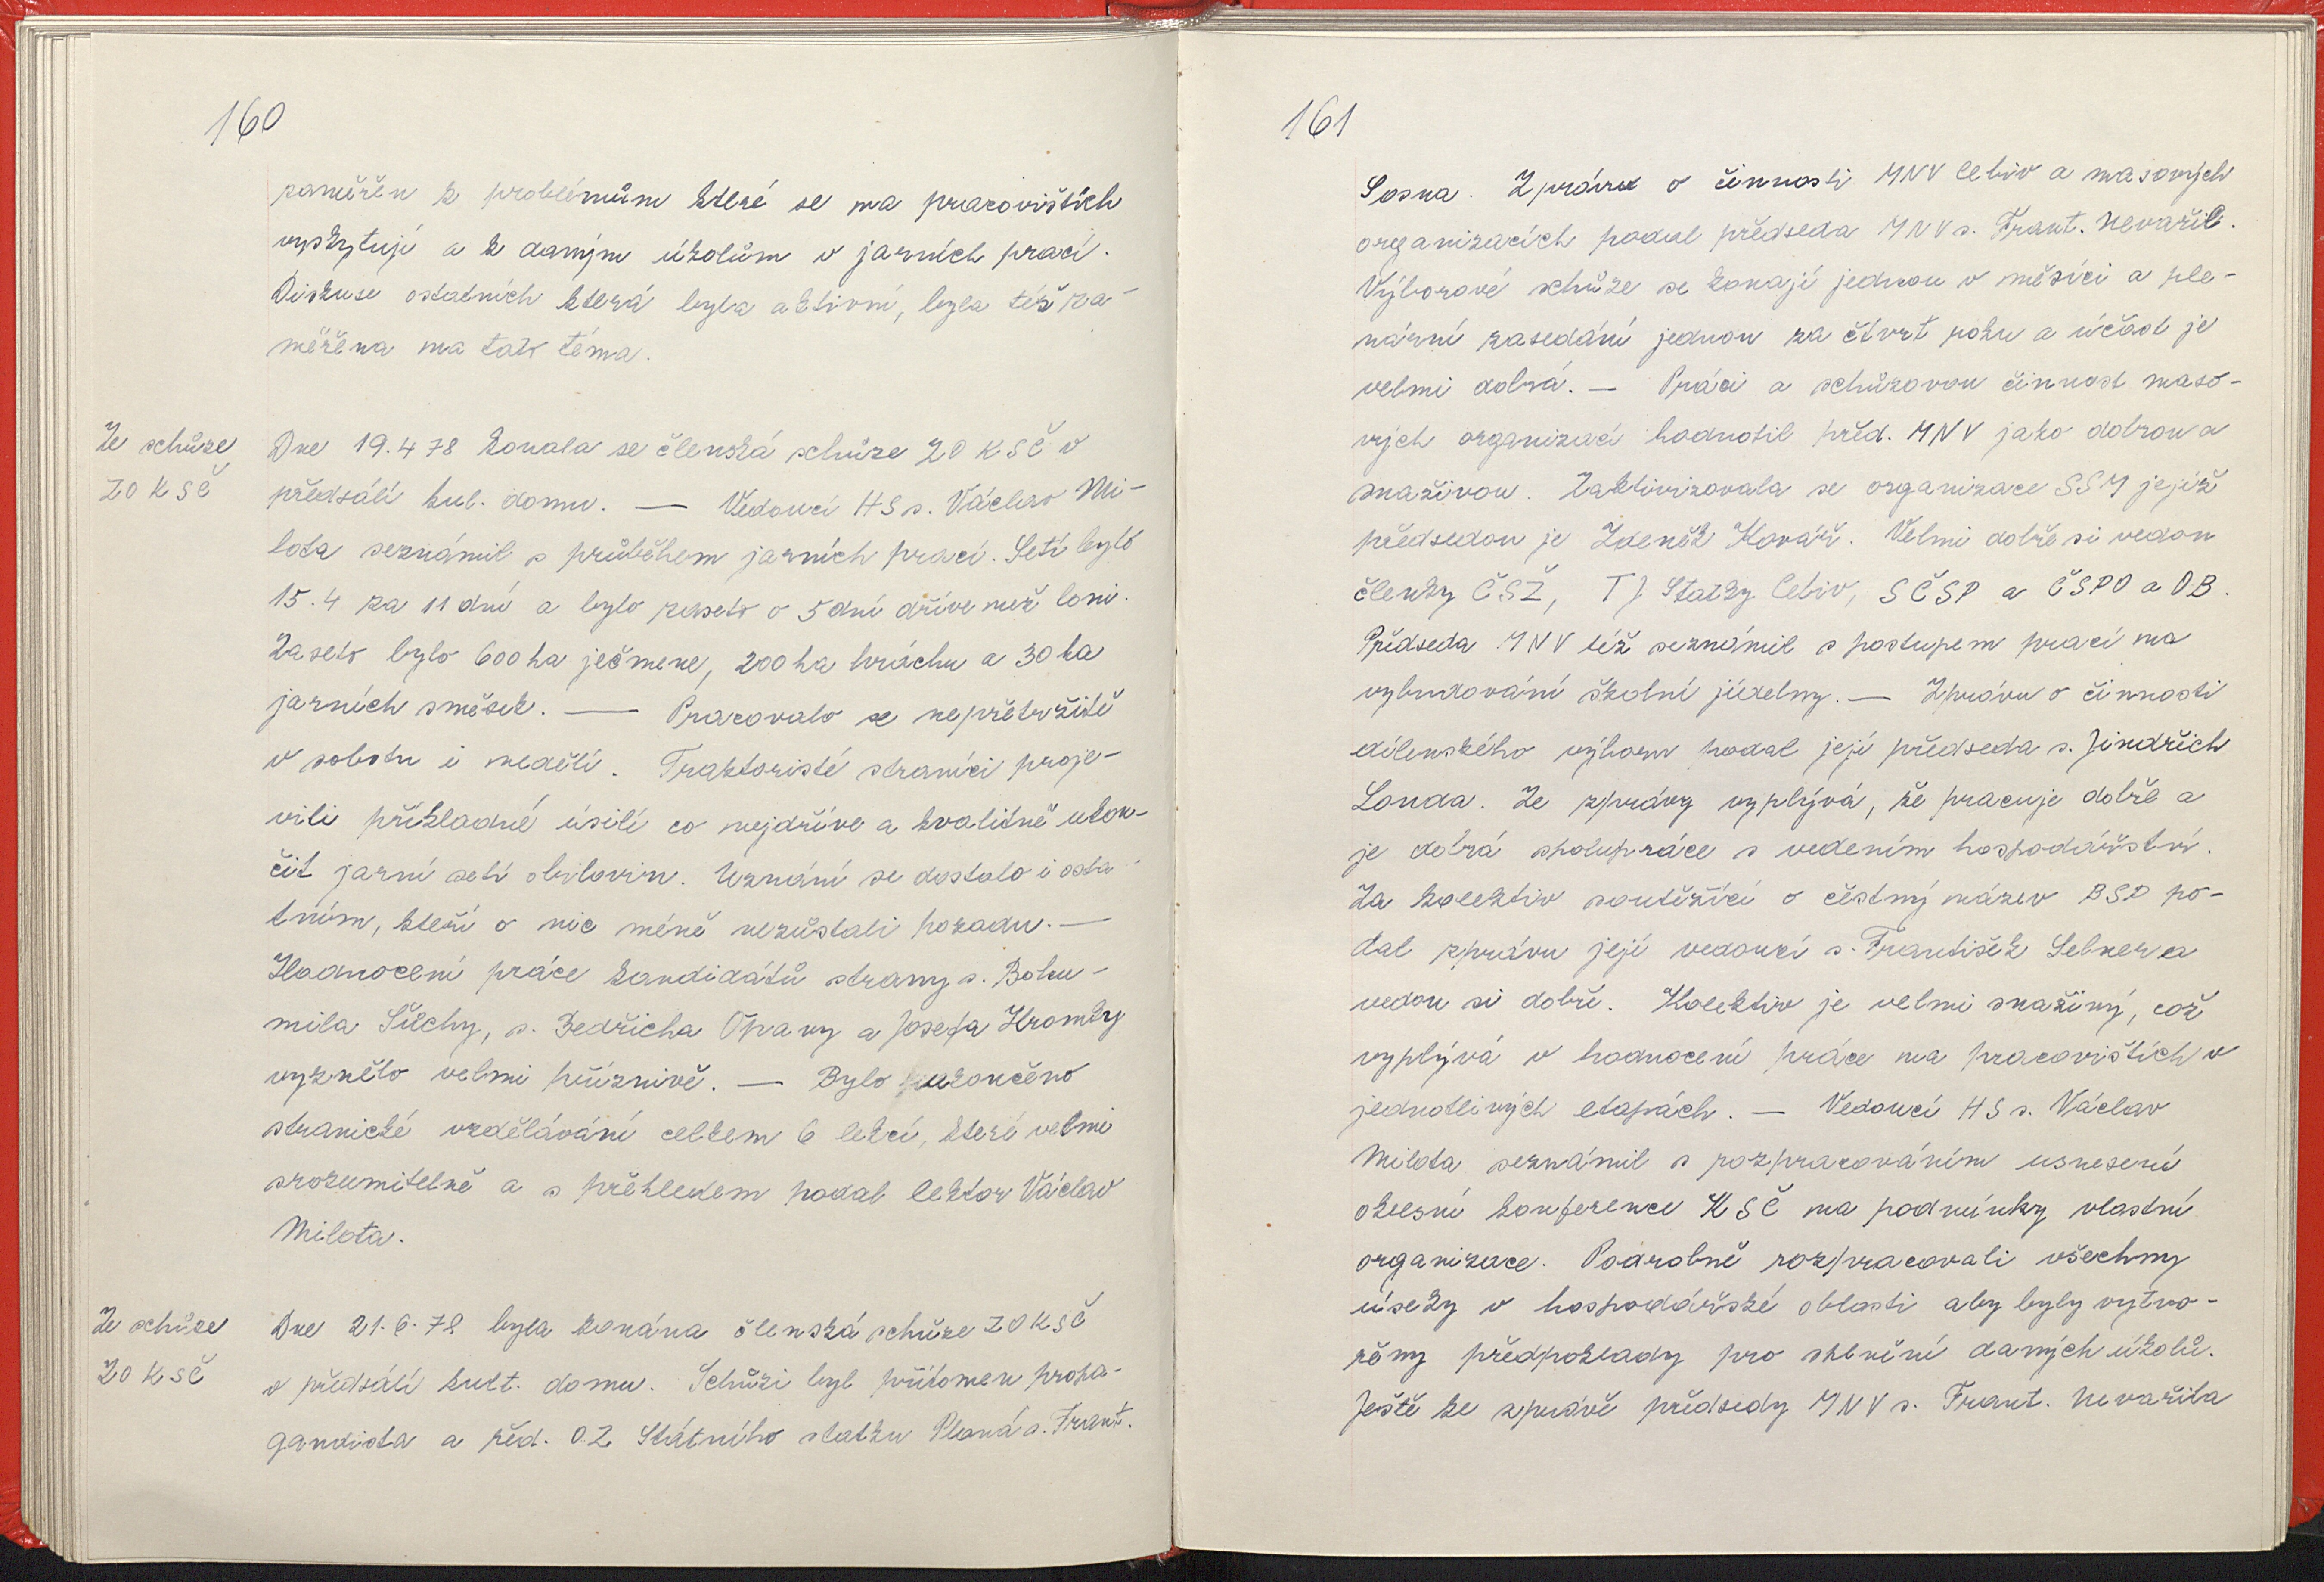 160
zaměřen k problémům které se na pracovištích
vyskytují a k daným úkolům v jarních prací.
Diskuse ostatních která byla aktivní, byla též za-
měřena na toto téma.
Ze schůze
ZO KSČ
Dne 19.4 78 konala se členská schůze ZO KSČ v
předsálí kul. domu. — Vedoucí HS s. Václav Mi-
lota seznámil s průběhem jarních prací. Setí bylo
15.4 za 11 dní a bylo zaseto o 5 dní dříve než loni.
Zaseto bylo 600 ha ječmene, 200 ha hráchu a 30 ha
jarních směsek. — Pracovalo se nepřetržitě
v sobotu i neděli. Traktoristé straníci proje-
vili příkladné úsilí co nejdříve a kvalitně ukon-
čit jarní setí obilovin. Uznání se dostalo i osta-
tním, kteří o nic méně nezůstali pozadu. —
Hodnocení práce kandidátů strany s. Bohu-
mila Šilhy, s. Bedřicha Opavy a Josefa Hromky
vyznělo velmi příznivě. — Bylo ukončeno
stranické vzdělávání celkem 6 lekcí, které velmi
srozumitelně a s přehledem podal lektor Václav
Milota.
Ze schůze
ZO KSČ
Dne 21.6.78 byla konána členská schůze ZO KSČ
v předsálí kult. domu. Schůzi byl přítomen propa-
gandista a řed. O.Z. Státního statku Planá s. Frant.
161
Sosna. Zprávu o činnosti MNV Cebiv a masových
organizacích podal předseda MNV s. Frant. Nevařil.
Výborové schůze se konají jednou v měsíci a ple-
nární zasedání jednou za čtvrt roku a účast je
velmi dobrá. — Práci a schůzovou činnost maso-
vých organizací hodnotil před. MNV jako dobrou a
snaživou. Zaktivizovala se organizace SSM jejíž
předsedou je Zdeněk Kovář. Velmi dobře si vedou
členky ČSŽ, TJ Statky Cebiv, SČSP a ČSPO a OB.
Předseda MNV též seznámil s postupem prací na
vybudování školní jídelny. — Zprávu o činnosti
dílenského výboru podal její předseda s. Jindřich
Londa. Ze zprávy vyplývá, že pracuje dobře a
je dobrá spolupráce s vedením hospodářství.
Za kolektiv soutěžící o čestný název BSP po-
dal zprávu její vedoucí s. František Selner a
vedou si dobře. Kolektiv je velmi snaživý, což
vyplývá v hodnocení práce na pracovištích v
jednotlivých etapách. — Vedoucí HS s. Václav
Milota seznámil s rozpracováním usnesení
okresní konference KSČ na podmínky vlastní
organizace. Podrobně rozpracovali všechny
úseky v hospodářské oblasti aby byly vytvo-
řěny předpoklady pro splnění daných úkolů.
Ještě ke zprávě předsedy MNV s. Frant. Nevařila